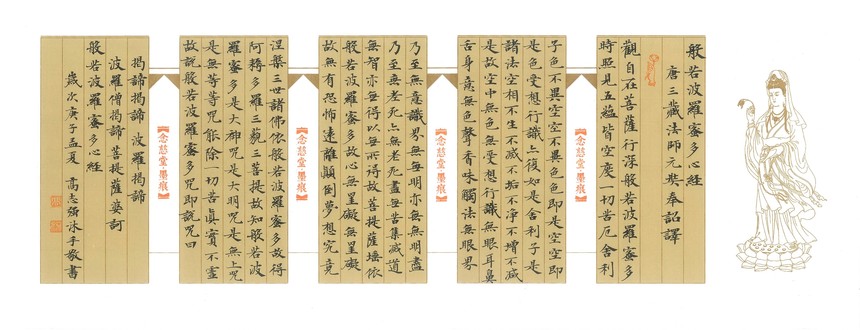 般若波羅蜜多心經
唐三藏法師元奘奉詔譯
觀自在菩薩行深般若波羅蜜多
時照見五蘊皆空度一切苦厄舍利
【念慈堂墨痕】
子色不異空空不異色色即是空空即
是色受想行識亦復如是舍利子是
諸法空相不生不滅不垢不淨不增不減
是故空中無色無受想行識無眼耳鼻
舌身意無色聲香味觸法無眼界
【念慈堂墨痕】
乃至無意識界無無明亦無無明盡
乃至無老死亦無老死盡無苦集滅道
無智亦無得以無所得故菩提薩埵依
般若波羅蜜多故心無罣礙無罣礙
故無有恐怖遠離顛倒夢想究竟
【念慈堂墨痕】
涅槃三世諸佛依般若波羅蜜多故得
阿耨多羅三藐三菩提故知般若波
羅蜜多是大神咒是大明咒是無上咒
是無等等咒能除一切苦真實不虛
故說般若波羅蜜多咒即說咒曰
【念慈堂墨痕】
揭諦揭諦 波羅揭諦
波羅僧揭諦 菩提薩婆訶
般若波羅蜜多心經
歲次庚子孟夏 高志強沐手敬書